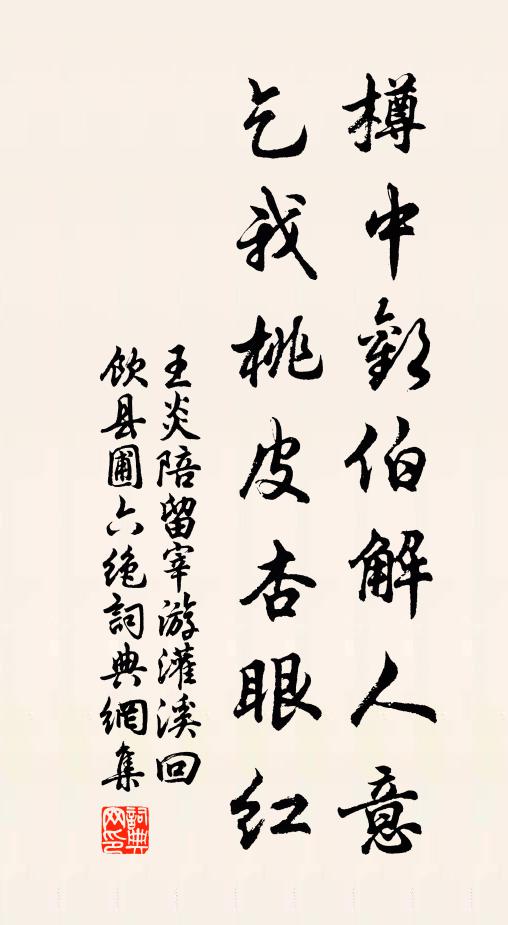 樽中歡伯解人意
乞我桃皮杏眼红
王炎陪留宰游灌溪回
飲县圃六绝詞典網集
詞典网印